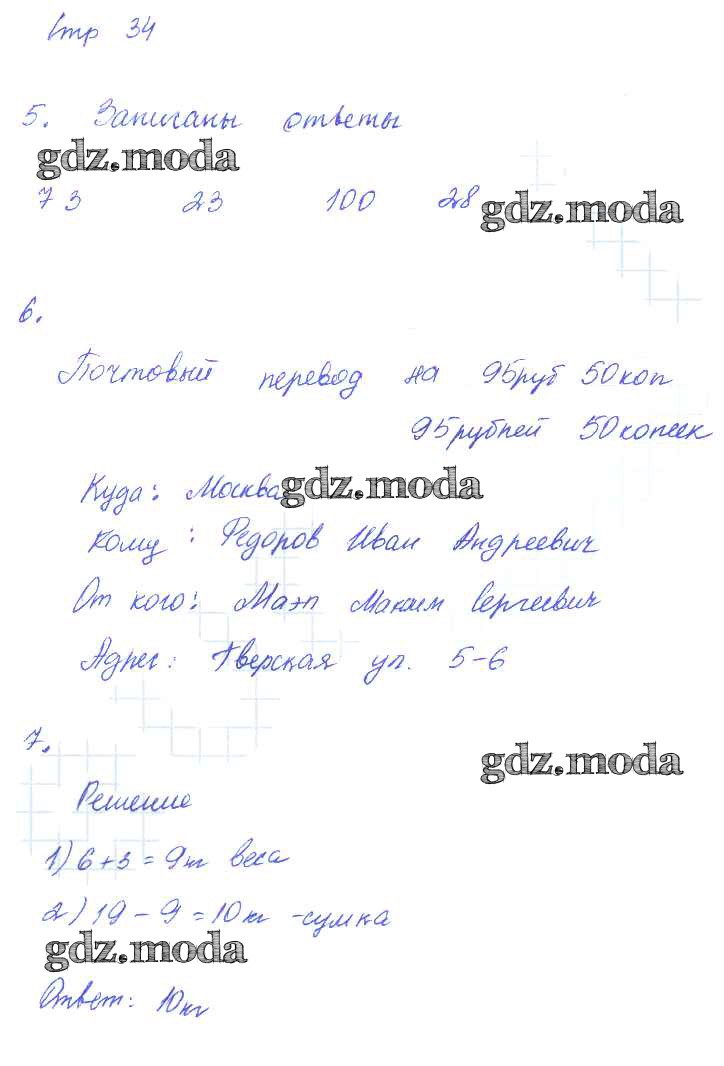 Стр 34
5. Записаны ответы
gdz.moda
73 23 100 28
gdz.moda
6.
Почтовый перевод на 95руб 50коп
95рублей 50копеек
Куда: Москва
gdz.moda
Кому: Федоров Иван Андреевич
От кого: Маэп Максим Сергеевич
Адрес: Тверская ул. 5-6
7.
gdz.moda
Решение
1) 6+3=9кг веса
2) 19-9=10кг -сумка
gdz.moda
Ответ: 10кг